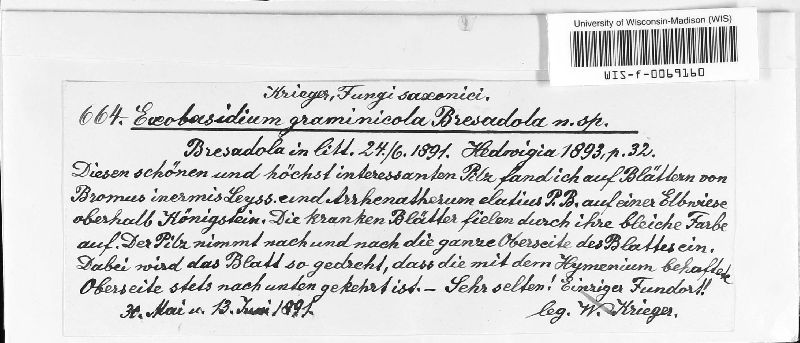 University of Wisconsin-Madison (WIS)
WIS-f-0069160
Krieger, Fungi saxonici.
664. Exobasidium graminicola Bresadola n. sp.
Bresadola in litt. 24./6. 1891. Hedwigia 1893, p. 32.
Diesen schönen und höchst interessanten Pilz fand ich auf Blättern von
Bromus inermis Leyss. und Arrhenatherum elatius P. B. auf einer Elbwiese
oberhalb Königstein. Die kranken Blätter fielen durch ihre bleiche Farbe
auf. Der Pilz nimmt nach und nach die ganze Oberseite des Blattes ein.
Dabei wird das Blatt so gedreht, dass die mit dem Hymenium behaftete
Oberseite stets nach unten gekehrt ist. — Sehr selten! Einziger Fundort!!
Mai u. 13. Juni 1891. leg. W. Krieger.